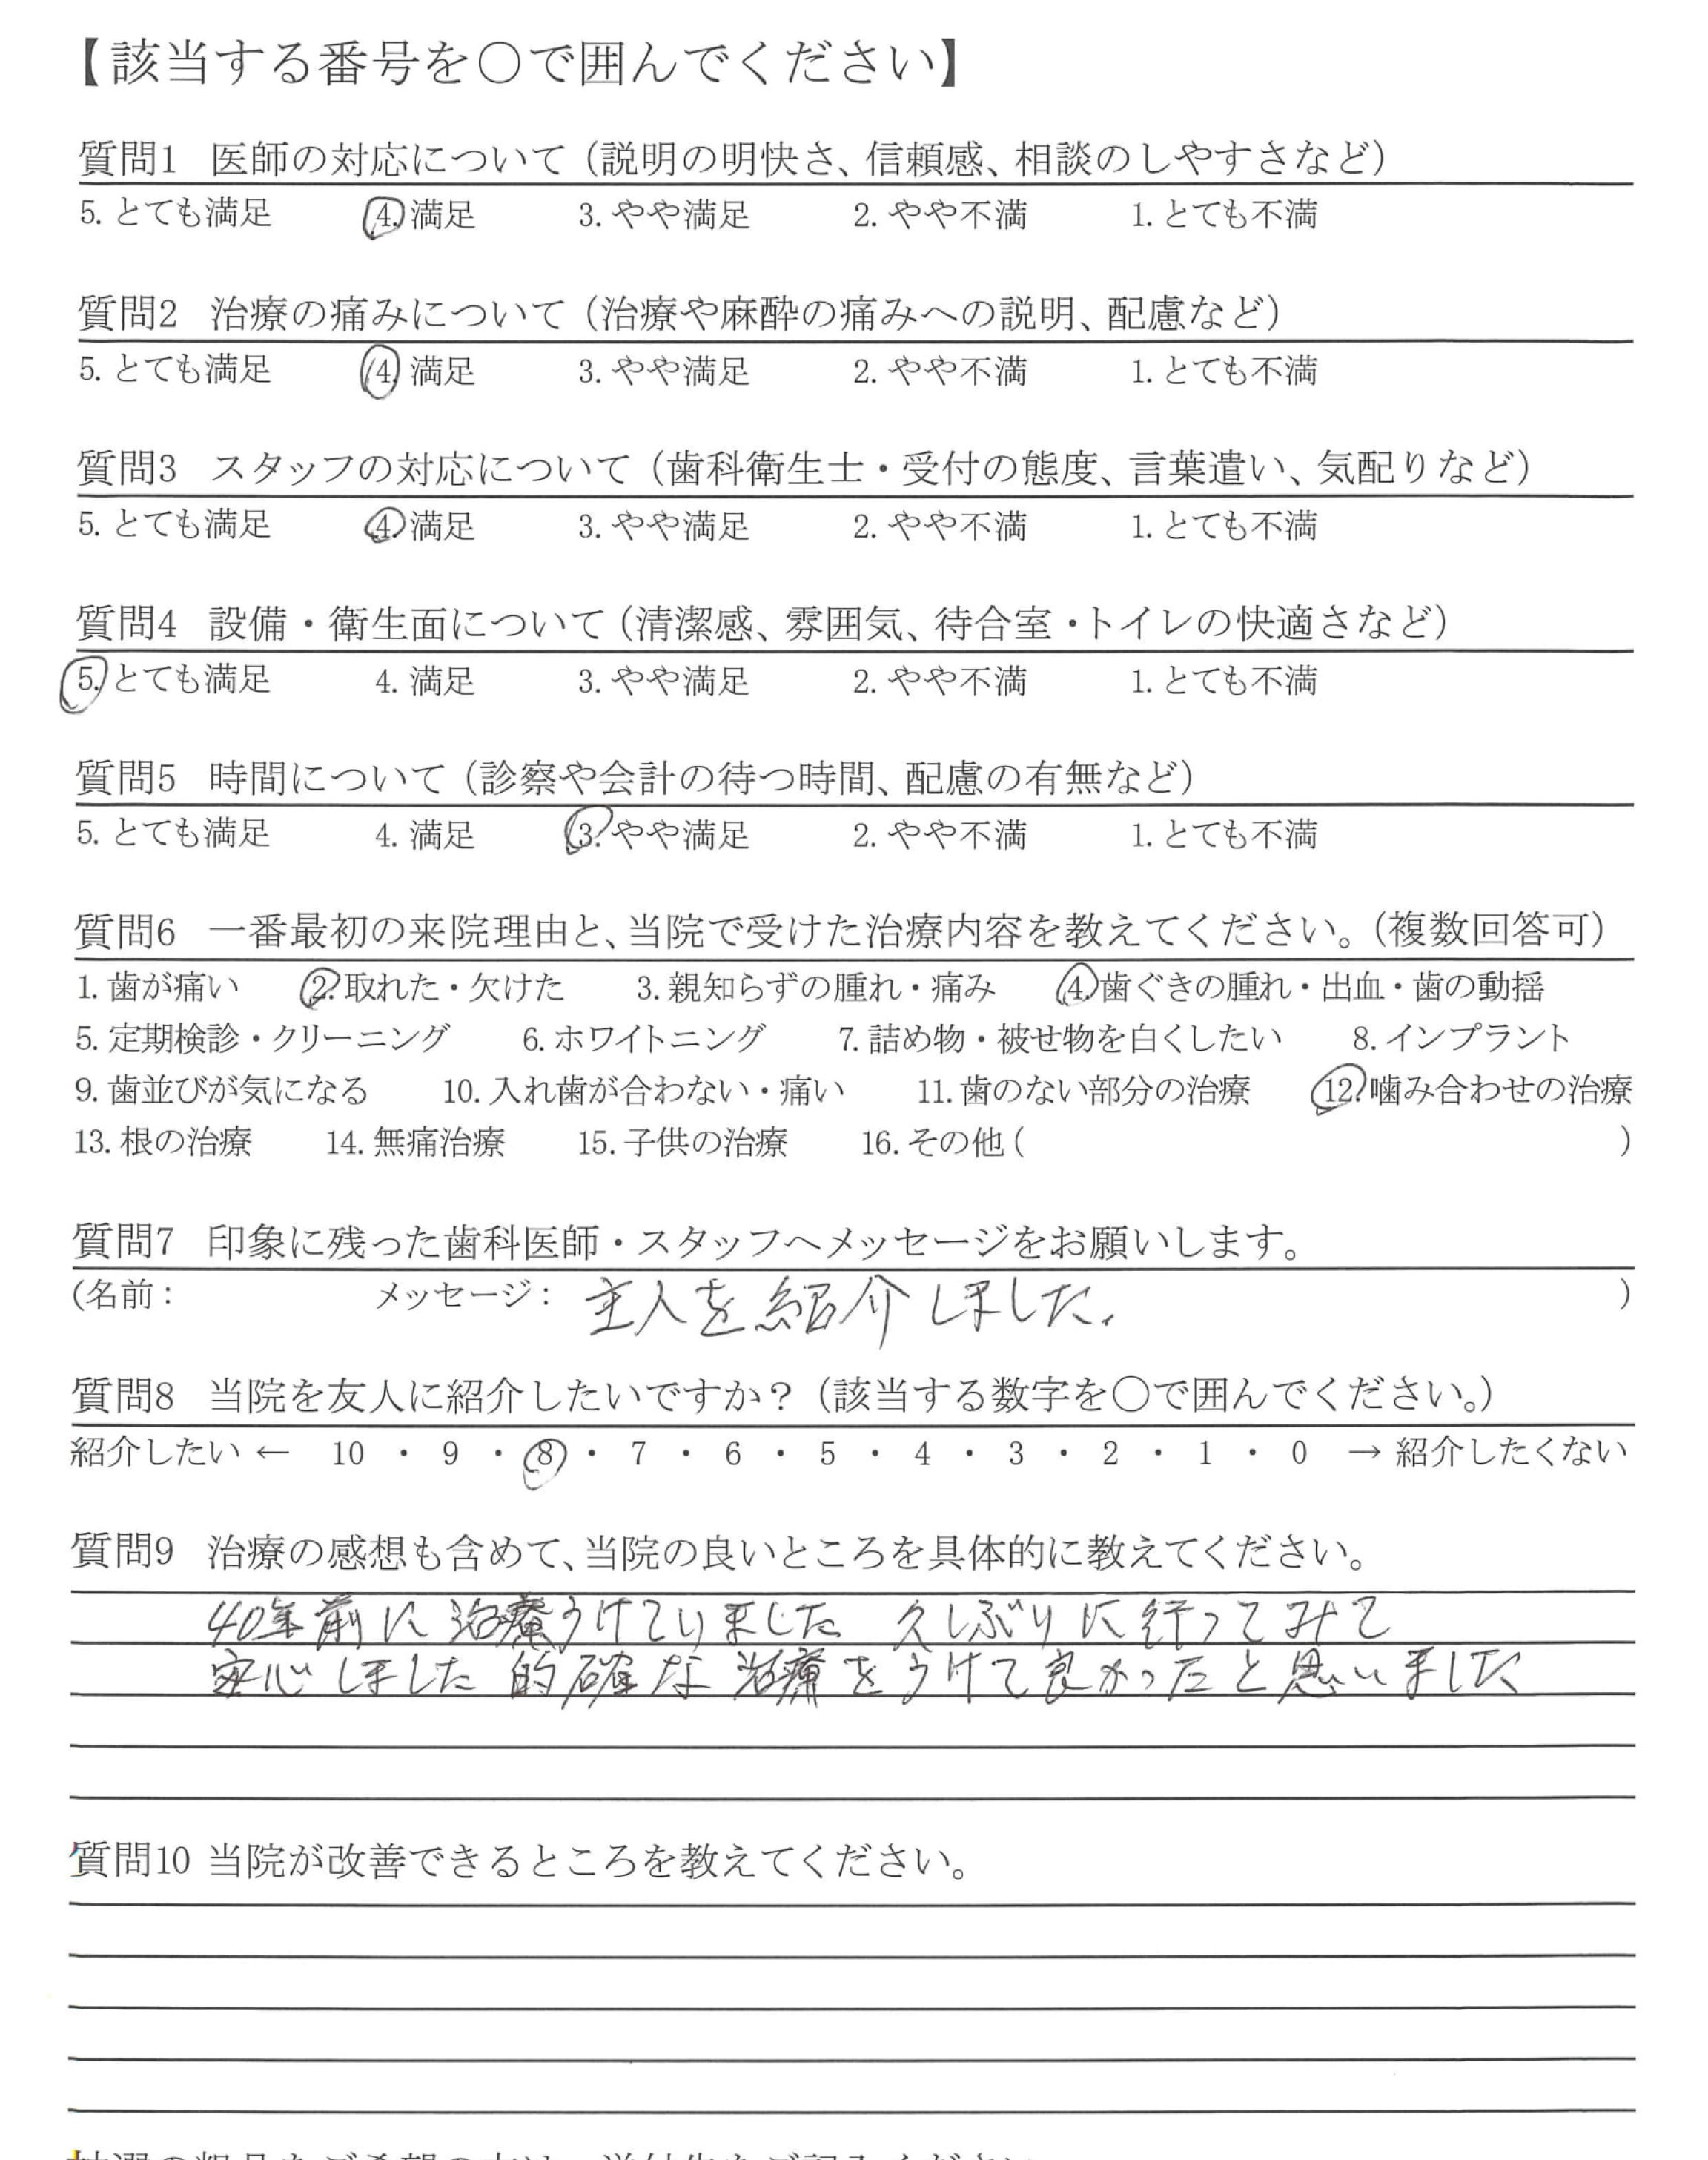 【該当する番号を〇で囲んでください】
質問1 医師の対応について（説明の明快さ、信頼感、相談のしやすさなど）
5. とても満足 4. 満足 3. やや満足 2. やや不満 1. とても不満
質問2 治療の痛みについて（治療や麻酔の痛みへの説明、配慮など）
5. とても満足 4. 満足 3. やや満足 2. やや不満 1. とても不満
質問3 スタッフの対応について（歯科衛生士・受付の態度、言葉遣い、気配りなど）
5. とても満足 4. 満足 3. やや満足 2. やや不満 1. とても不満
質問4 設備・衛生面について（清潔感、雰囲気、待合室・トイレの快適さなど）
5. とても満足 4. 満足 3. やや満足 2. やや不満 1. とても不満
質問5 時間について（診察や会計の待つ時間、配慮の有無など）
5. とても満足 4. 満足 3. やや満足 2. やや不満 1. とても不満
質問6 一番最初の来院理由と、当院で受けた治療内容を教えてください。（複数回答可）
1. 歯が痛い 2. 取れた・欠けた 3. 親知らずの腫れ・痛み 4. 歯ぐきの腫れ・出血・歯の動揺
5. 定期検診・クリーニング 6. ホワイトニング 7. 詰め物・被せ物を白くしたい 8. インプラント
9. 歯並びが気になる 10. 入れ歯が合わない・痛い 11. 歯のない部分の治療 12. 噛み合わせの治療
13. 根の治療 14. 無痛治療 15. 子供の治療 16. その他 ( )
質問7 印象に残った歯科医師・スタッフへメッセージをお願いします。
(名前： メッセージ： 主人を紹介しました. )
質問8 当院を友人に紹介したいですか？（該当する数字を〇で囲んでください。）
紹介したい ← 10 ・ 9 ・ 8 ・ 7 ・ 6 ・ 5 ・ 4 ・ 3 ・ 2 ・ 1 ・ 0 → 紹介したくない
質問9 治療の感想も含めて、当院の良いところを具体的に教えてください。
40年前に治療うけていました 久しぶりに行ってみて
安心しました 的確な治療をうけて良かったと思いました
質問10 当院が改善できるところを教えてください。